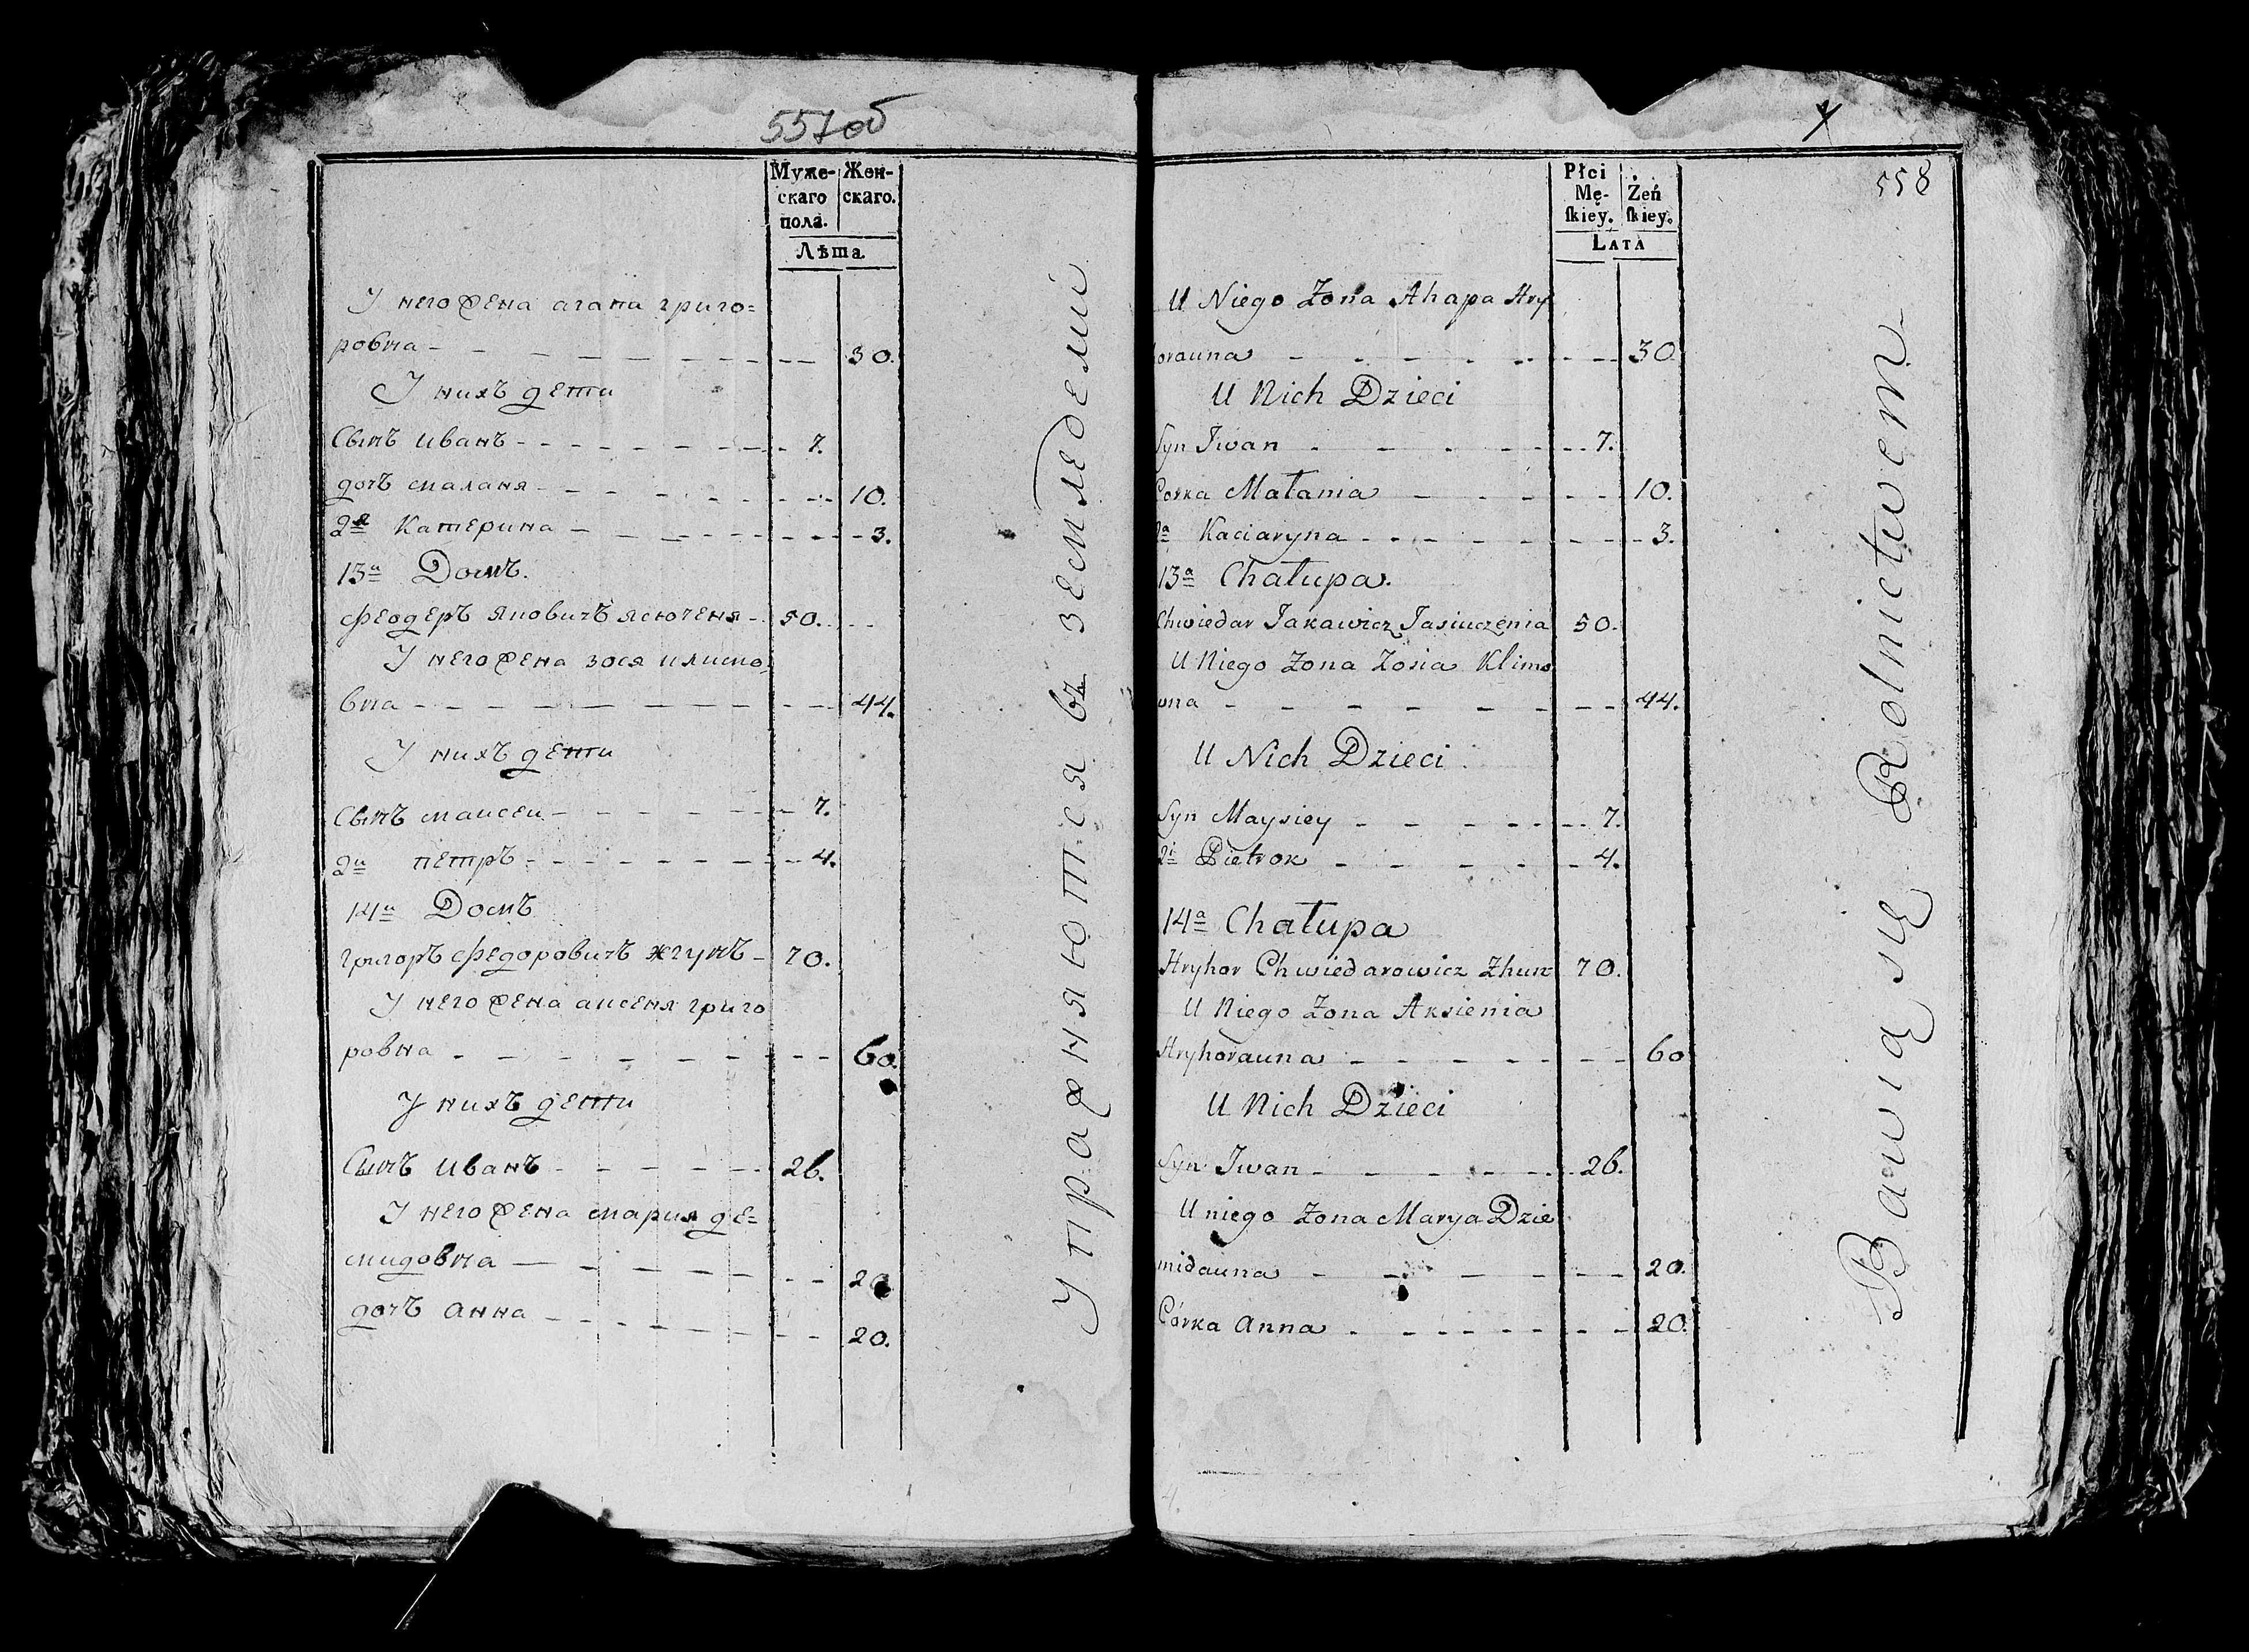 557об
Муже- Жен-
скаго скаго.
пола.
Лѣта.
У него жена агапа григо=
ровна - - - - 30.
У нихъ дети
Сынъ иванъ - - - - 7.
дочъ маланя - - - - 10.
2я Катерина - - - - 3.
13й Домъ.
Феодеръ яковичъ ясюченя - 50.
У него жена зося климо=
вна - - - - 44.
У нихъ дети
Сынъ мансеи - - - - 7.
2й петръ - - - - 4.
14й Домъ
григоръ федоровичъ жгунъ - 70.
У него жена аксеня григо
ровна - - - - 60.
У нихъ дети
Сынъ иванъ - - - - 26.
У него жена мария де=
мидовна - - - - 20
дочъ анна - - - - 20.
упражняются въ земледелии
558
Płci
Mę- Żeń
skiey. skiey.
LATA
U Niego Zona Ahapa Hry
horauna - - - - 30.
U Nich Dzieci
Syn Jwan - - - - 7.
Corka Małania - - - - 10.
2a Kaciaryna - - - - 3.
13a Chałupa.
Chwiedar Jakawicz Jasiuczenia 50.
U Niego Zona Zosia Klimo
wna - - - - 44.
U Nich Dzieci
Syn Maysiey - - - - 7.
2i Pietrok - - - - 4.
14a Chałupa
Hryhor Chwiedarowicz Zhun 70.
U Niego Zona Aksienia
Hryhorauna - - - - 60
U Nich Dzieci
Syn Jwan - - - - 26.
U niego Zona Marya Dzie
midauna - - - - 20.
Córka Anna - - - - 20.
Bawią się Rolnictwem